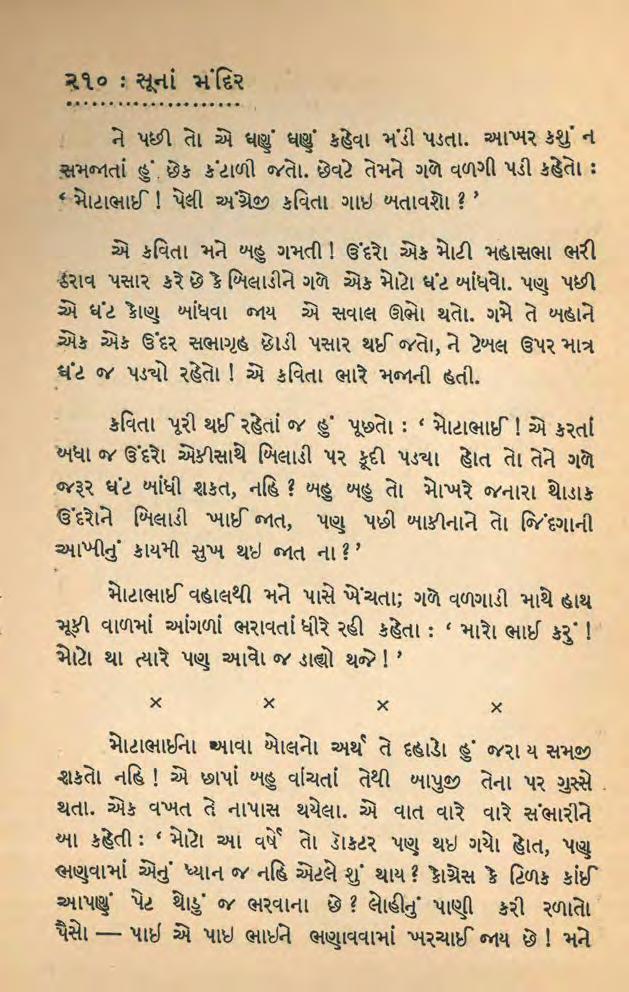 ૨૧૦ : સૂનાં મંદિર
ને પછી તો એ ઘણું ઘણું કહેવા મંડી પડતા. આખર કશું ન
સમજાતાં હું છેક કંટાળી જતો. છેવટે તેમને ગળે વળગી પડી કહેતો :
‘ મોટાભાઈ ! પેલી અંગ્રેજી કવિતા ગાઇ બતાવશો ? ’
એ કવિતા મને બહુ ગમતી ! ઉંદરો એક મોટી મહાસભા ભરી
ઠરાવ પસાર કરે છે કે બિલાડીને ગળે એક મોટો ઘંટ બાંધવો. પણ પછી
એ ઘંટ કોણ બાંધવા જાય એ સવાલ ઊભો થતો. ગમે તે બહાને
એક એક ઉંદર સભાગૃહ છોડી પસાર થઈ જતો, ને ટેબલ ઉપર માત્ર
ઘંટ જ પડ્યો રહેતો ! એ કવિતા ભારે મજાની હતી.
કવિતા પૂરી થઈ રહેતાં જ હું પૂછતો : ‘ મોટાભાઈ ! એ કરતાં
બધા જ ઉંદરો એકીસાથે બિલાડી પર કૂદી પડ્યા હોત તો તેને ગળે
જરૂર ઘંટ બાંધી શકત, નહિ ? બહુ બહુ તો મોખરે જનારા થોડાક
ઉંદરોને બિલાડી ખાઈ જાત, પણ પછી બાકીનાને તો જિંદગાની
આખીનું કાયમી સુખ થઇ જાત ના ? ’
મોટાભાઈ વહાલથી મને પાસે ખેંચતા; ગળે વળગાડી માથે હાથ
મૂકી વાળમાં આંગળાં ભરાવતાં ધીરે રહી કહેતા : ‘ મારો ભાઈ કરું !
મોટો થા ત્યારે પણ આવો જ ડાહ્યો થજે ! ’
× × × ×
મોટાભાઈના આવા બોલનો અર્થ તે દહાડો હું જરા ય સમજી
શકતો નહિ ! એ છાપાં બહુ વાંચતાં તેથી બાપુજી તેના પર ગુસ્સે
થતા. એક વખત તે નાપાસ થયેલા. એ વાત વારે વારે સંભારીને
બા કહેતી : ‘ મોટો આ વર્ષે તો ડૉકટર પણ થઇ ગયો હોત, પણ
ભણવામાં એનું ધ્યાન જ નહિ એટલે શું થાય ? કોગ્રેસ કે ટિળક કાંઈ
આપણું પેટ થોડું જ ભરવાના છે ? લોહીનું પાણી કરી રળાતો
પૈસો — પાઇ એ પાઇ ભાઇને ભણાવવામાં ખરચાઈ જાય છે ! મને